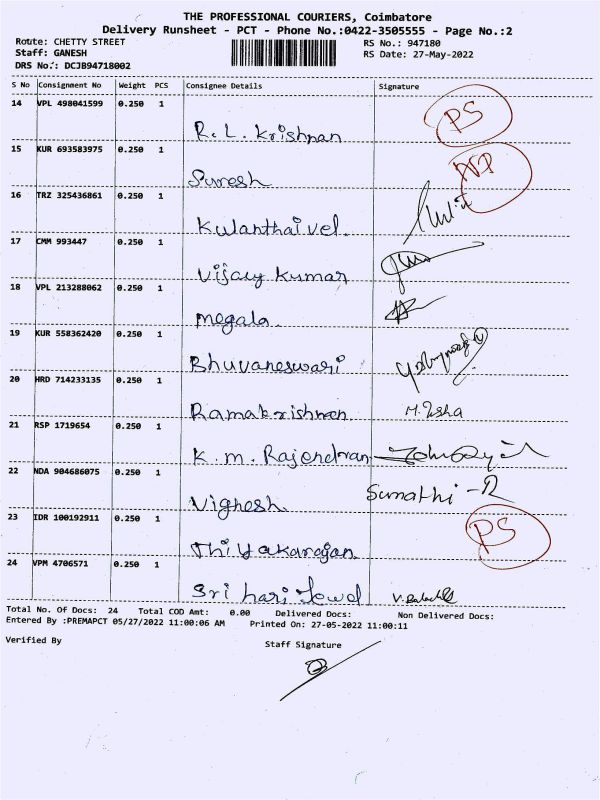 THE PROFESSIONAL COURIERS, Coimbatore
Delivery Runsheet - PCT - Phone No.:0422-3505555 - Page No.:2
Route: CHETTY STREET RS No.: 947180
Staff: GANESH RS Date: 27-May-2022
DRS No.: DCJB94718002
S No Consignment No Weight PCS Consignee Details Signature
14 VPL 498041599 0.250 1 R.L. Krishnan PS
15 KUR 693583975 0.250 1 Suresh NP
16 TRZ 325436861 0.250 1 Kulanthaivel.
17 CMM 993447 0.250 1 Vijay Kumar
18 VPL 213288062 0.250 1 Megala.
19 KUR 558362420 0.250 1 Bhuvaneswari
20 HRD 714233135 0.250 1 Ramakrishnan M.
21 RSP 1719654 0.250 1 K.M. Rajendran
22 NDA 904686075 0.250 1 Vighesh Sumathi - R
23 IDR 100192911 0.250 1 Thiyakarajan PS
24 VPM 4706571 0.250 1 Sri hari Towel
Total No. Of Docs: 24 Total COD Amt: 0.00 Delivered Docs: Non Delivered Docs:
Entered By :PREMAPCT 05/27/2022 11:00:06 AM Printed On: 27-05-2022 11:00:11
Verified By Staff Signature